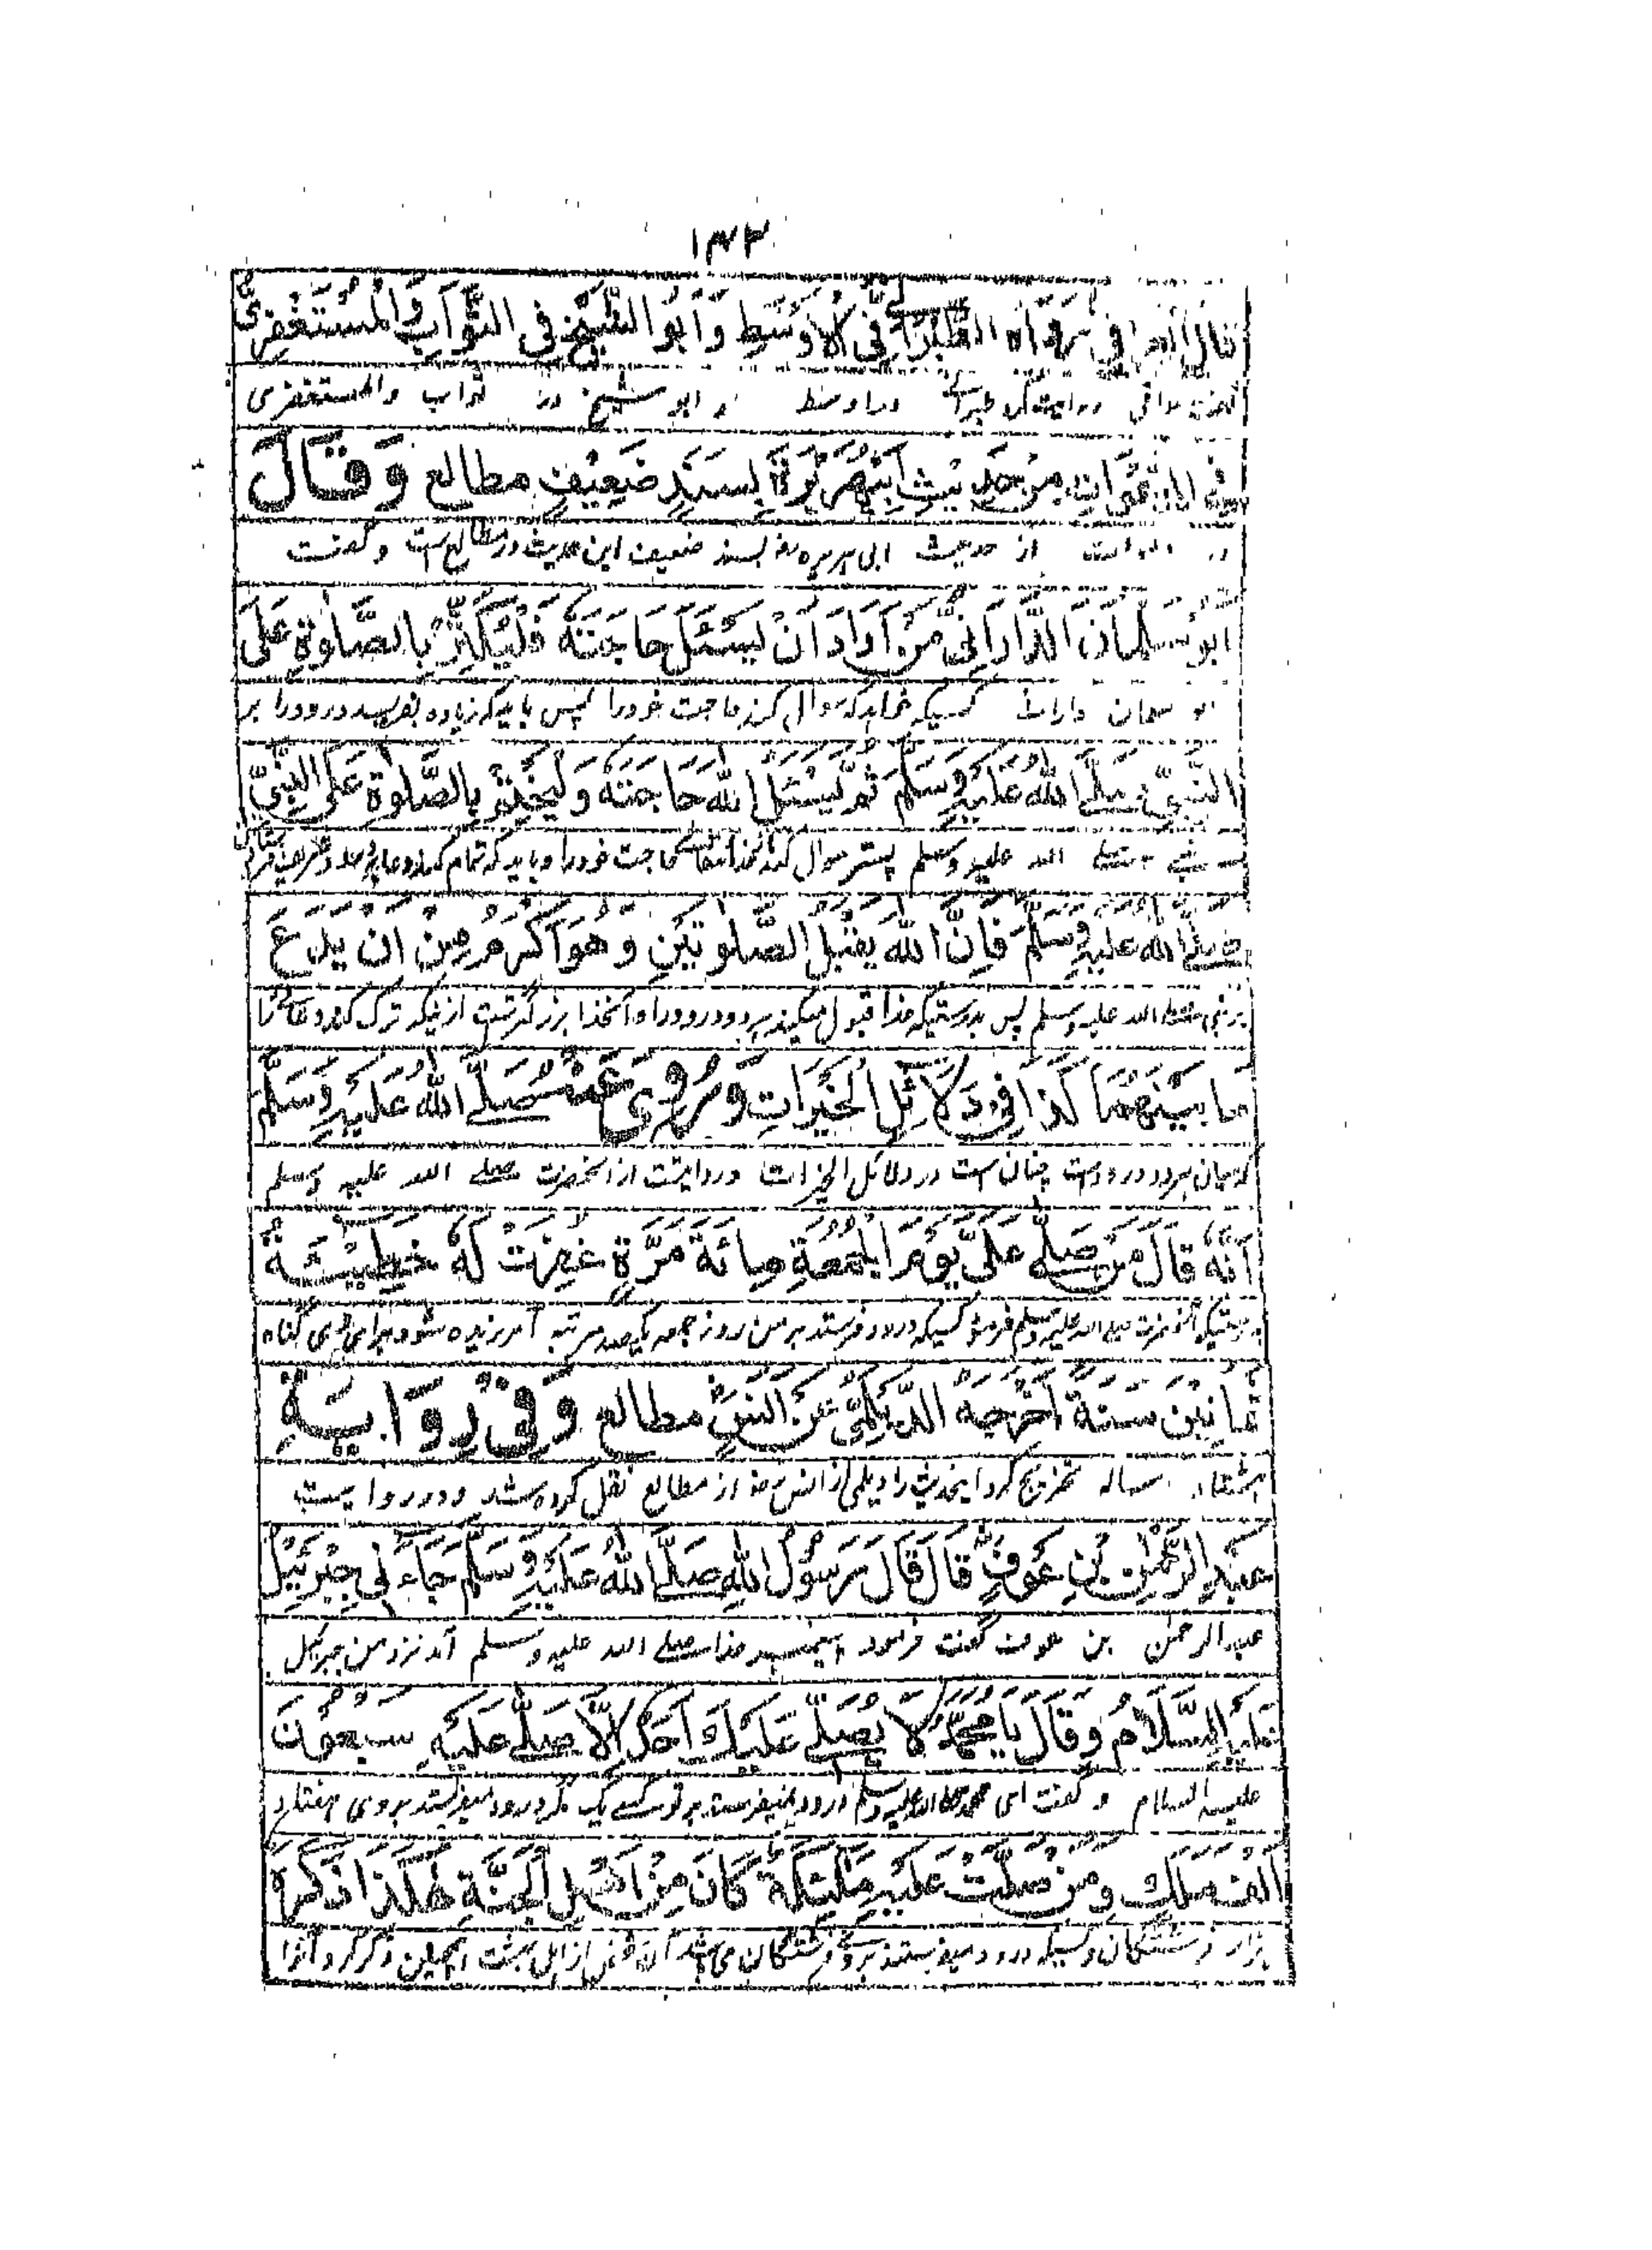 ١٣٣
قَالَ رَوَاهُ الطَّبَرَانِيُّ فِي الْأَوْسَطِ وَأَبُو الشَّيْخِ فِي الثَّوَابِ وَالْمُسْتَغْفِرِيُّ
در اوسط و ابو شیخ در ثواب والمستغفری
فِي الدَّعَوَاتِ مِنْ حَدِيْثِ أَبِي هُرَيْرَةَ بِسَنَدٍ ضَعِيْفٍ مطالع وَقَالَ
از حدیث ابی هریره رض بسند ضعیف این حدیث در مطالع است و گفت
اَبُو سُلَيْمَانَ الدَّارَانِيُّ مَنْ اَرَادَ اَنْ يَسْئَلَ حَاجَتَهُ فَلْيُكَثِّرْ بِالصَّلٰوةِ عَلَى
کسیکه خواهد که سوال کند حاجت خود را پس باید که زیاده بفرستد درود را بر
النَّبِيِّ صَلَّى اللهُ عَلَيْهِ وَسَلَّمَ ثُمَّ يَسْئَلُ اللهَ حَاجَتَهُ وَلْيَخْتِمْ بِالصَّلٰوةِ عَلَى النَّبِيِّ
صلے الله علیه وسلم پستر سوال کند حاجت خود را و باید که تمام کند
صَلَّى اللهُ عَلَيْهِ وَسَلَّمَ فَاِنَّ اللهَ يَقْبَلُ الصَّلٰوتَيْنِ وَهُوَ اَكْرَمُ مِنْ اَنْ يَدَعَ
بر نبی صلے الله علیه وسلم پس بدرستیکه خدا قبول میکند هر دو درود را و آنخدا بزرگترست ازینکه ترک کند
مَا بَيْنَهُمَا كَذَا فِيْ دَلَائِلِ الْخَيْرَاتِ وَرُوِيَ عَنْهُ صَلَّى اللهُ عَلَيْهِ وَسَلَّمَ
که میان هر دو درودست چنان ست در دلائل الخیرات و روایتست از آنحضرت صلے الله علیه وسلم
اَنَّهُ قَالَ مَنْ صَلَّى عَلَيَّ يَوْمَ الْجُمُعَةِ مِائَةَ مَرَّةٍ غُفِرَتْ لَهُ خَطِيْئَةُ
آنحضرت صلے الله علیه وسلم فرمود کسیکه درود فرستد بر من روز جمعه یکصد مرتبه آمرزیده شود برای وی گناه
ثَمَانِيْنَ سَنَةً اَخْرَجَهُ الدَّيْلَمِيُّ عَنْ اَنَسٍ مطالع وَفِيْ رِوَايَةِ
هشتاد ساله تخریج کرد اینحدیث را دیلمی از انس رض از مطالع نقل کرده شد و در روایت
عَبْدِ الرَّحْمٰنِ بْنِ عَوْفٍ قَالَ قَالَ رَسُوْلُ اللهِ صَلَّى اللهُ عَلَيْهِ وَسَلَّمَ جَاءَنِيْ جِبْرَئِيْلُ
عبدالرحمٰن بن عوف گفت فرمود پیغمبر خدا صلے الله علیه وسلم آمد نزد من جبرئیل
عَلَيْهِ السَّلَامُ وَقَالَ يَا مُحَمَّدُ لَا يُصَلِّيْ عَلَيْكَ اَحَدٌ اِلَّا صَلّٰى عَلَيْهِ سَبْعُوْنَ
علیه السلام و گفت ای محمد صلے الله علیه وسلم درود نمیفرستد بر تو کسے یک مگر درود میفرستد بروی هفتاد
اَلْفَ مَلَكٍ وَمَنْ صَلَّتْ عَلَيْهِ مَلٰئِكَةٌ كَانَ مِنْ اَهْلِ الْجَنَّةِ هٰكَذَا ذَكَرَهُ
هزار فرشتگان و کسیکه درود میفرستند بروے فرشتگان می باشد از اهل بهشت همچنین ذکر کرد آنرا